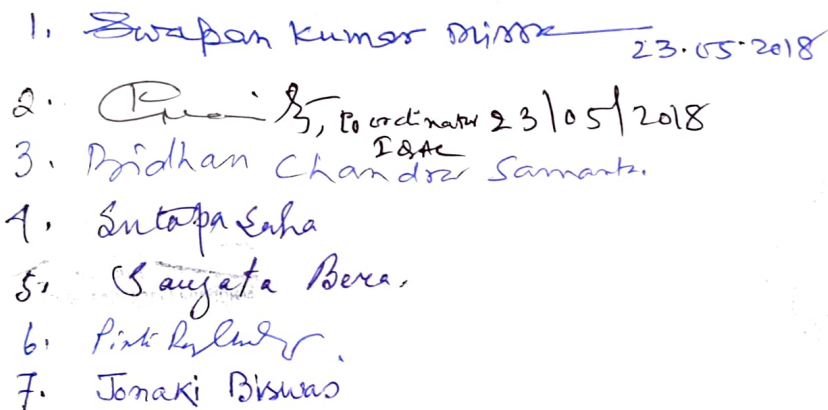 1. Swapan Kumar Misra 23.05.2018
2. Coordinator 23/05/2018
IQAC
3. Bidhan Chandra Samanta.
4. Sutapa Saha
5. Saujata Bera.
6. Pinki
7. Jonaki Biswas